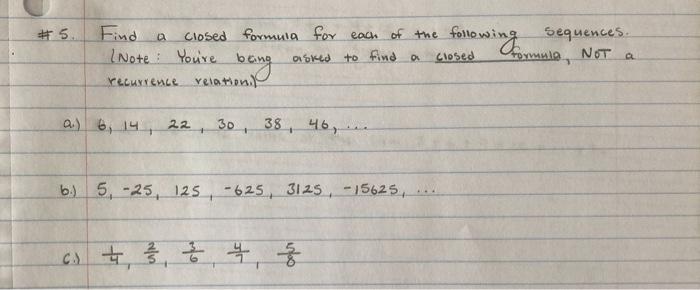 #5. Find a closed formula for each of the following sequences.
(Note: You're being asked to find a closed formula, NOT a
recurrence relation.)
a.) 6, 14, 22, 30, 38, 46, ...
b.) 5, -25, 125, -625, 3125, -15625, ...
c.) 1/4, 2/5, 3/6, 4/7, 5/8